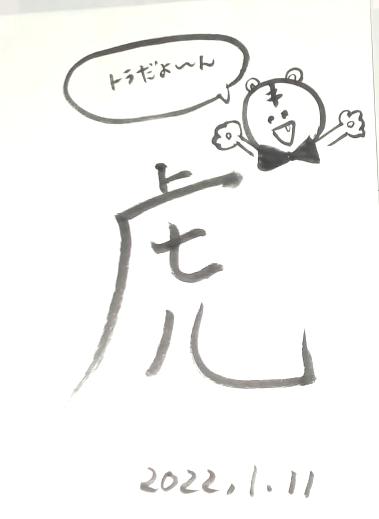 トラだよ〜ん
虎
2022.1.11